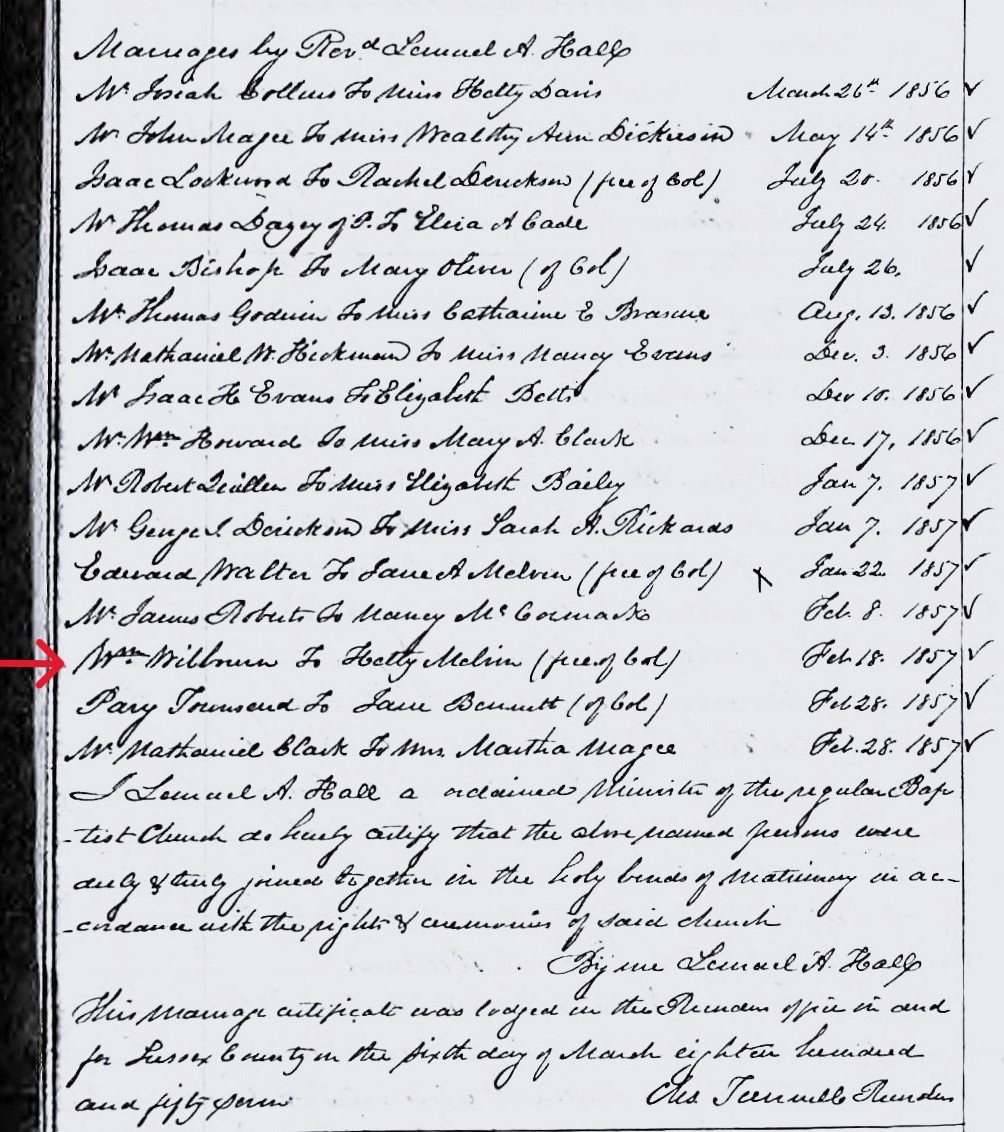 Marriages by Revd Lemuel A. Hall
Mr Josiah Collins To Miss Hetty Davis March 26th 1856 ✓
Mr John Magee To Miss Wealthy Ann Dickieson May 14th 1856 ✓
Isaac Lockwood To Rachel Derickson (free of Col) July 20. 1856 ✓
Mr Thomas Dazey of P. To Eliza A Cade July 24. 1856 ✓
Isaac Bishop To Mary Oliver (of Col) July 26. ✓
Mr Thomas Godwin To Miss Catharine E Aug. 13. 1856 ✓
Mr Nathaniel W. Hickman To Miss Nancy Evans Dec. 3. 1856 ✓
Mr Isaac H Evans To Elizabeth Betts Dec 10. 1856 ✓
Mr Wm Howard To Miss Mary A. Clark Dec 17, 1856 ✓
Mr Robert Quillen To Miss Elizabeth Bailey Jan 7. 1857 ✓
Mr George I. Derickson To Miss Sarah A. Rickards Jan 7. 1857 ✓
Edward Walter To Jane A Melvin (free of Col) X Jan 22. 1857 ✓
Mr James Roberts To Nancy McCormack Feb. 8. 1857 ✓
Wm Wilbourn To Hetty Melvin (free of Col) Feb 18. 1857 ✓
Pary Townsend To Jane Bennett (of Col) Feb 28. 1857 ✓
Mr Nathaniel Clark To Mrs. Martha Magee Feb. 28. 1857 ✓
I Lemuel A. Hall a ordained Minister of the regular Bap
-tist Church do hereby certify that the above named persons were
duly & truly joined together in the holy bonds of Matrimony in ac-
-cordance with the rights & ceremonies of said church
By me Lemuel A. Hall
This Marriage certificate was lodged in the Recorders office in and
for Sussex County on the sixth day of March eighteen hundred
and fifty seven Chs Tunnell Recorder